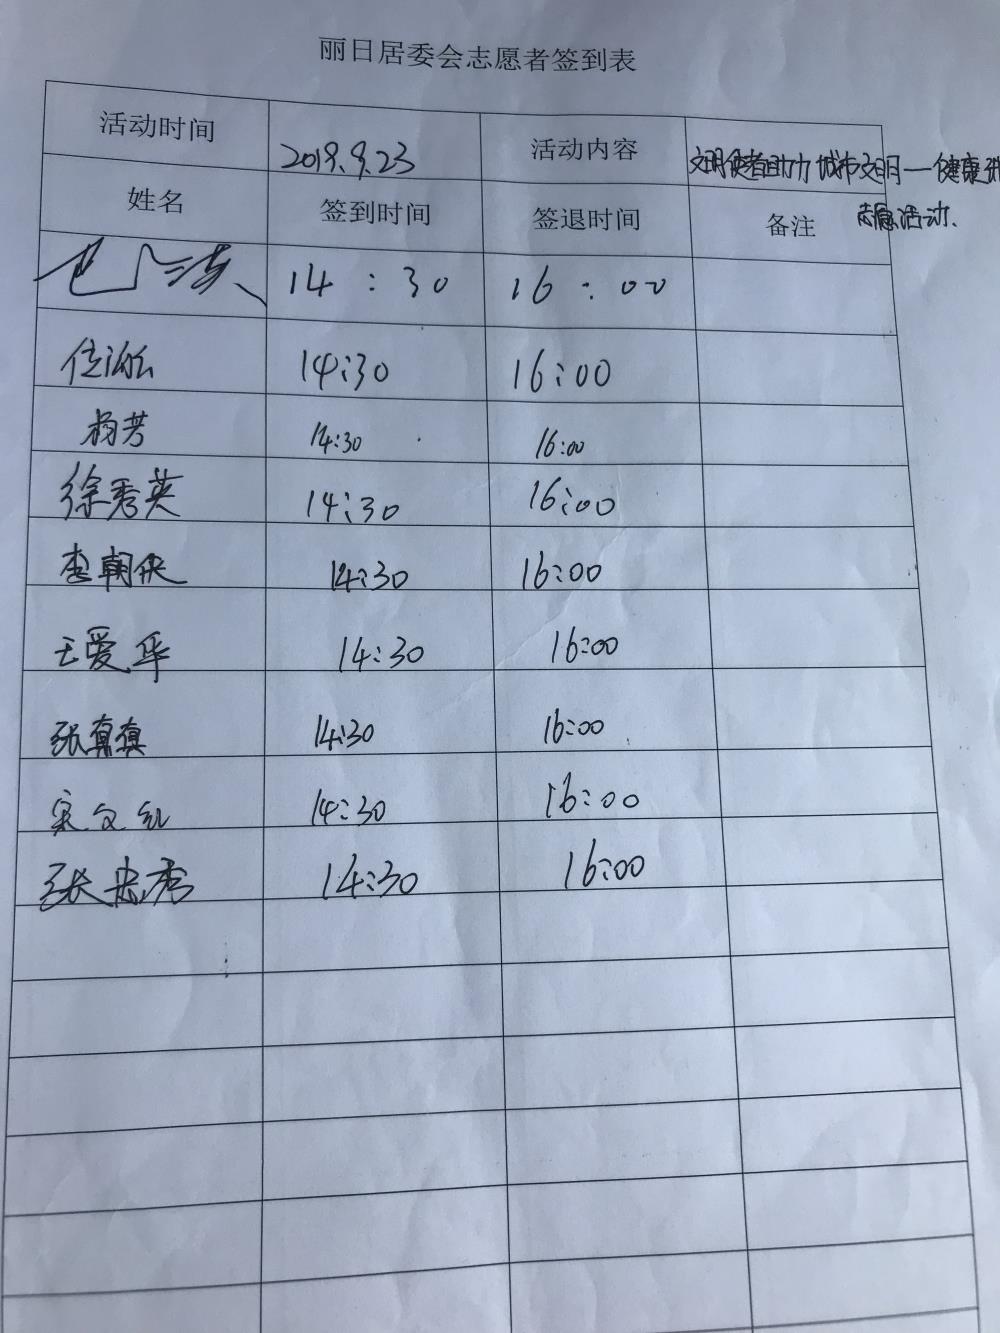 丽日居委会志愿者签到表
活动时间 2019.9.23 活动内容 文明使者助力城市文明一健康
志愿活动.
姓名 签到时间 签退时间 备注
14:30 16:00
14:30 16:00
杨芳 14:30 16:00
徐秀英 14:30 16:00
李朝侠 14:30 16:00
王爱华 14:30 16:00
张真真 14:30 16:00
宋文红 14:30 16:00
张忠秀 14:30 16:00